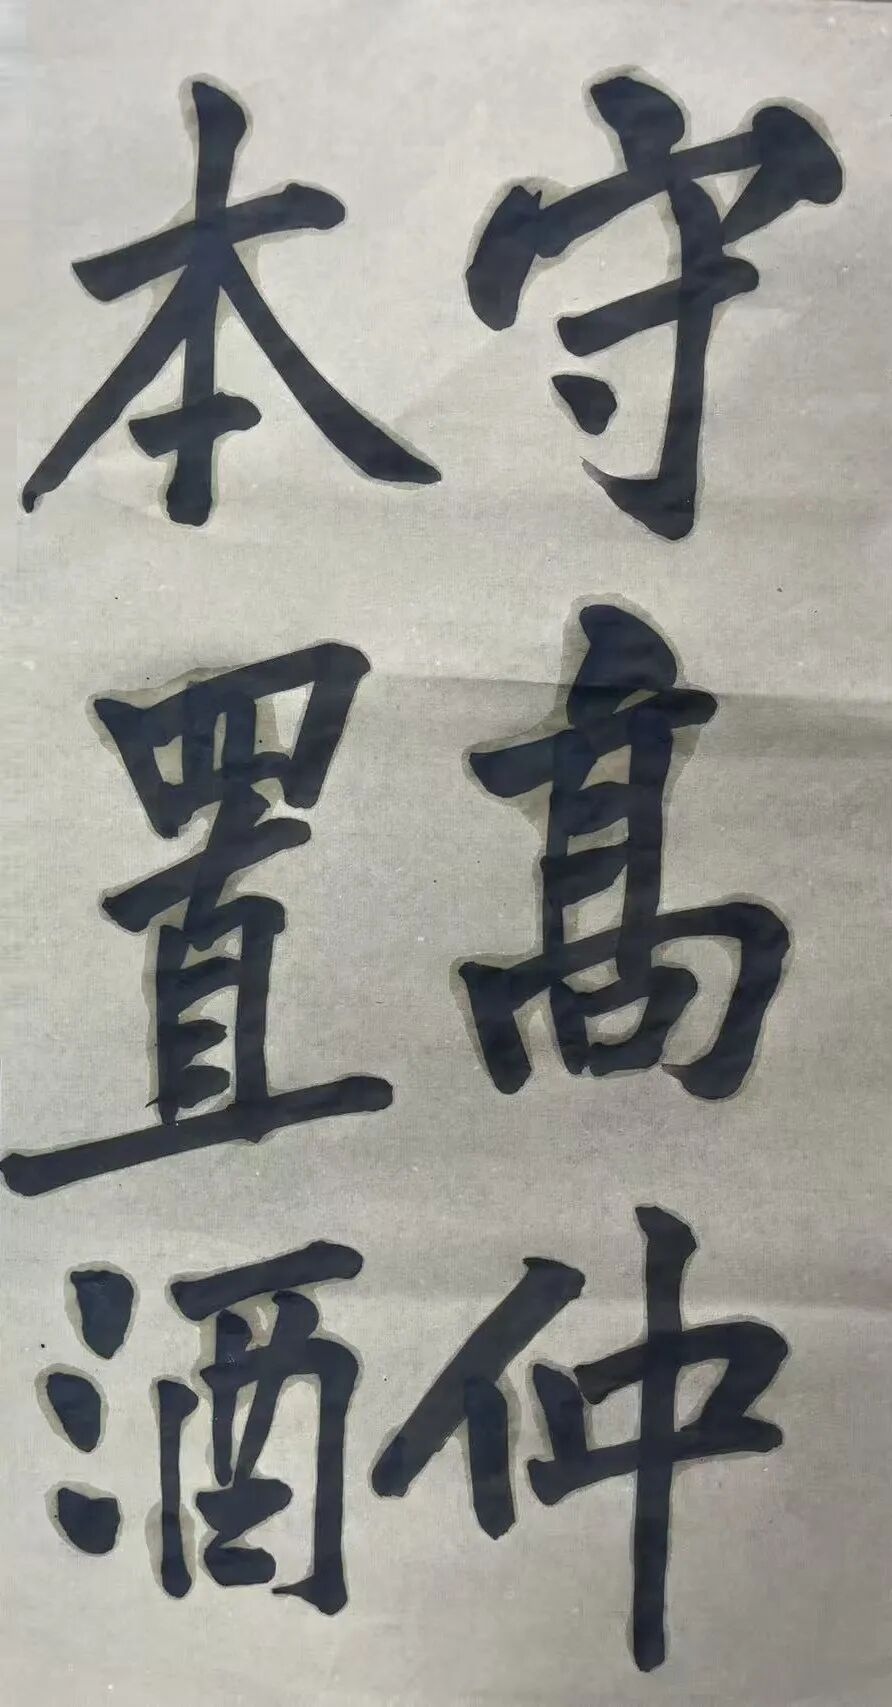 守高仲
本置酒